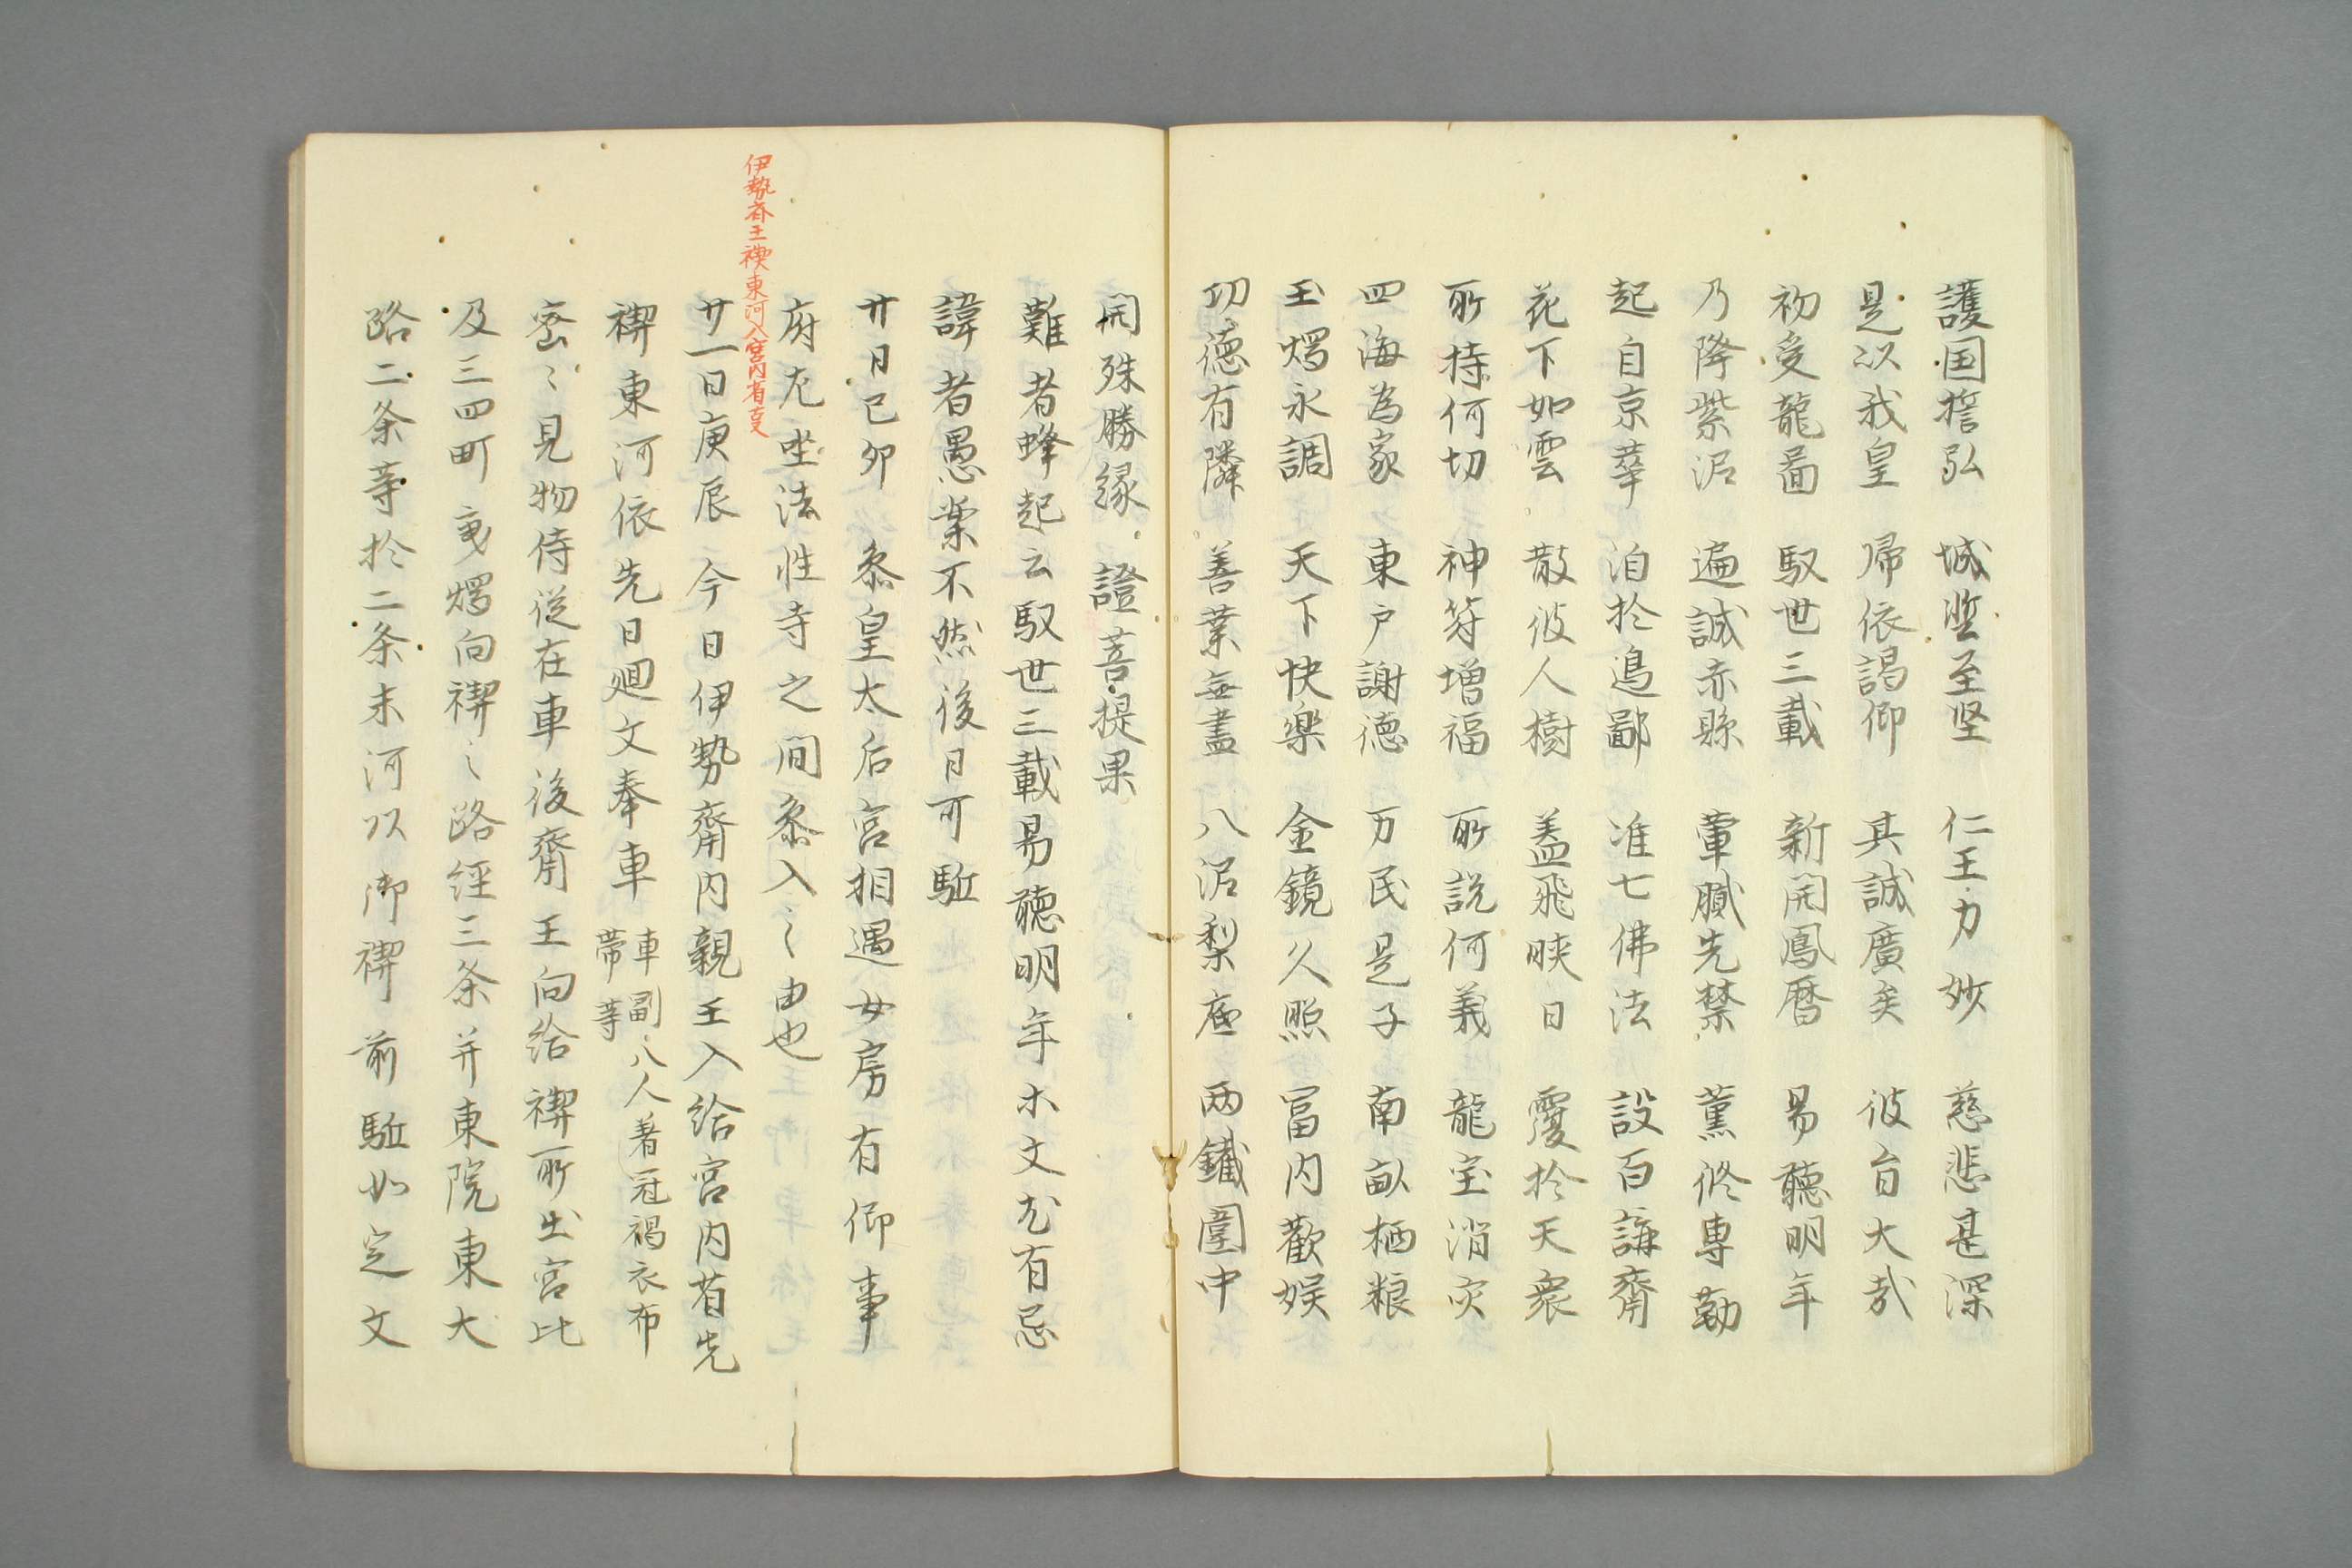 護国誓弘　城塹至堅　仁王力妙　慈悲甚深
是以我皇　帰依謁仰　其誠廣矣　彼旨大哉
初受龍圖　馭世三載　新開鳳暦　易聴明年
乃降紫泥　遍誡赤縣　葷膩先禁　薫修専勤
起自京華　洎於邉鄙　准七佛法　設百講齋
花下如雲　散彼人樹　盖飛暎日　覆於天衆
所持何切　神符増福　所説何義　龍宝消灾
四海為家　東戸謝徳　万民是子　南畝栖粮
玉燭永調　天下快樂　金鏡久照　冨内歡娯
功徳有隣　善業無盡　八泥梨底　両鐵圍中
開殊勝縁　證菩提果
難者蜂起云馭世三載易聴明年ホ文尤有忌
諱者愚案不然後日可駈
廿日己卯　参皇太后宮相遇女房有仰事
府尤坐法性寺之間参入之由也
伊勢斎王禊東河入宮内省支
廿一日庚辰　今日伊勢齋内親王入給宮内省先
禊東河依先日廻文奉車　車副八人著冠褐衣布
帯等
密〻見物侍従在車後齋王向給禊所出宮比
及三四町　乗燭向禊〻路経三条并東院東大
路二条等於二条末河以御禊　前駈如定文